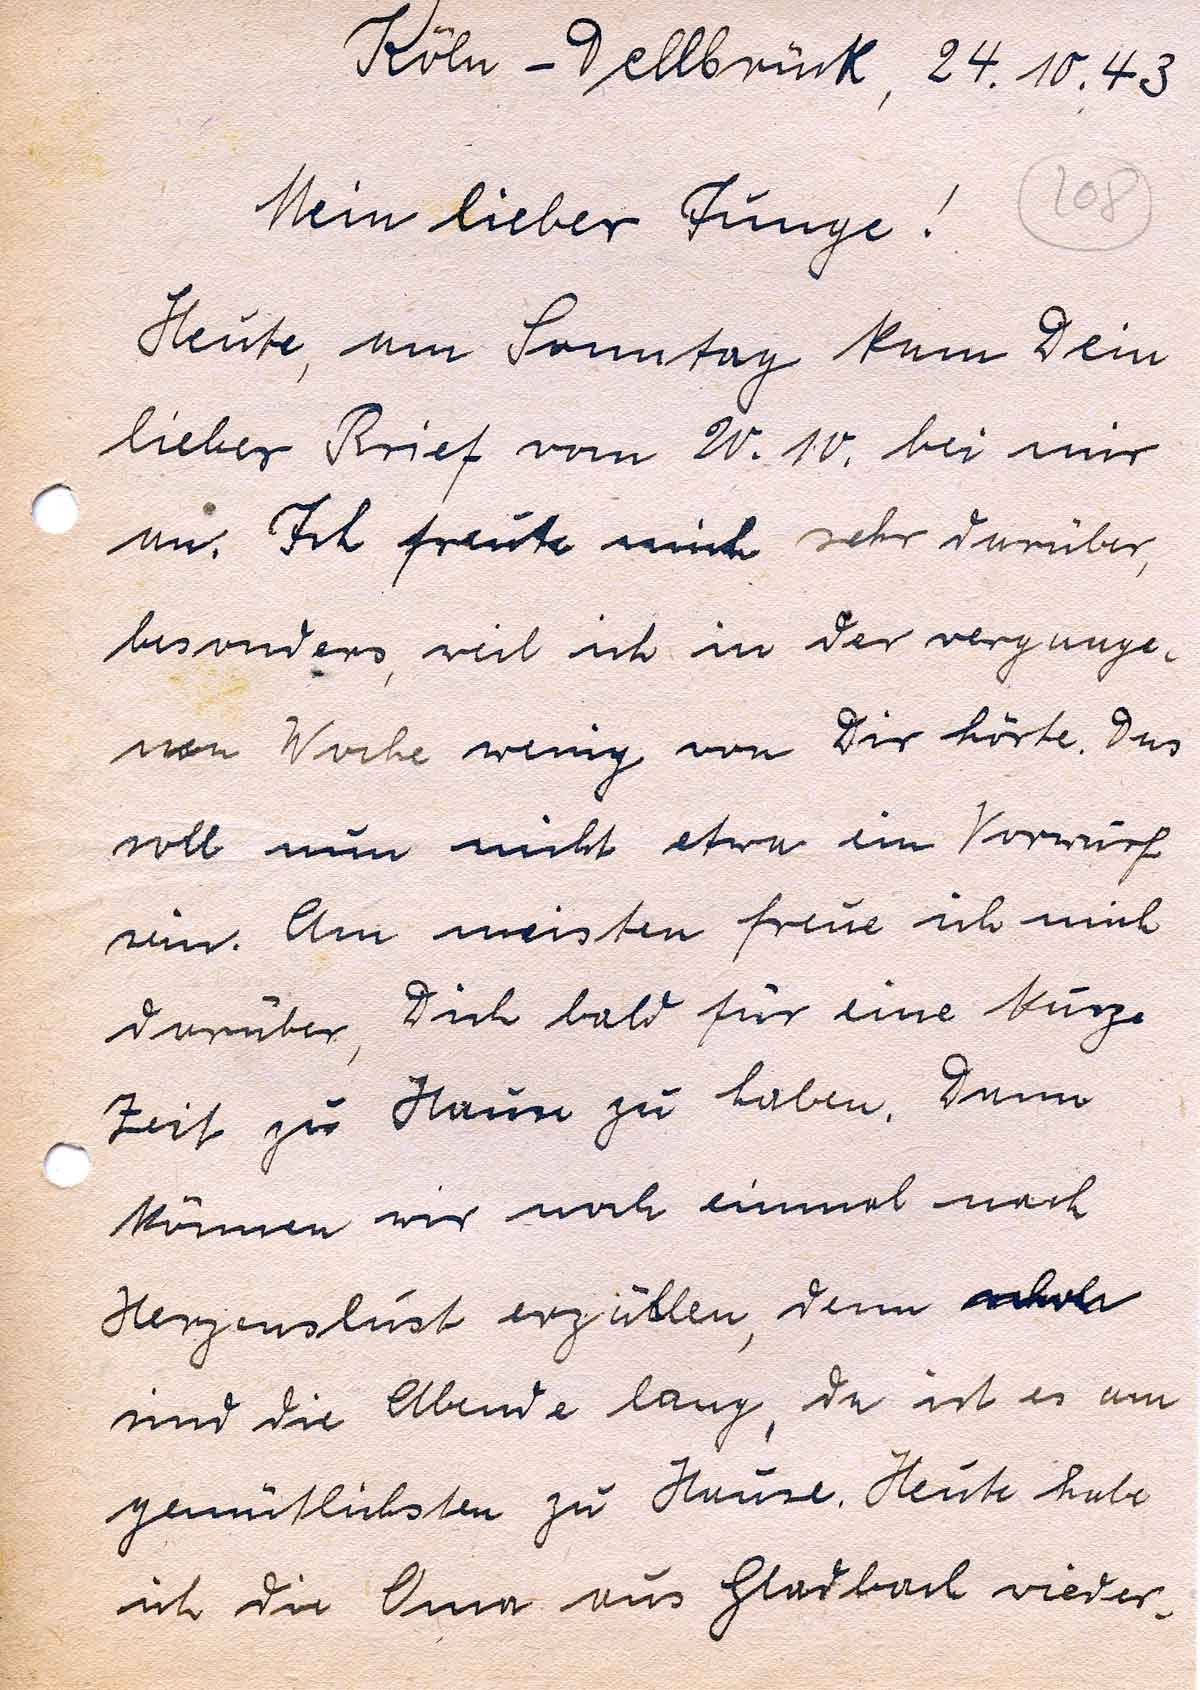 Köln-Dellbrück, 24.10.43
208
Mein lieber Junge!
Heute, am Sonntag kam Dein
lieber Brief vom 20.10. bei mir
an. Ich freute mich sehr darüber,
besonders, weil ich in der vergange-
nen Woche wenig von Dir hörte. Das
soll nun nicht etwa ein Vorwurf
sein. Am meisten freue ich mich
darüber, Dich bald für eine kurze
Zeit zu Hause zu haben. Dann
können wir noch einmal nach
Herzenslust erzählen, denn
sind die Abende lang, da ist es am
gemütlichsten zu Hause. Heute habe
ich die Oma aus Gladbach wieder-